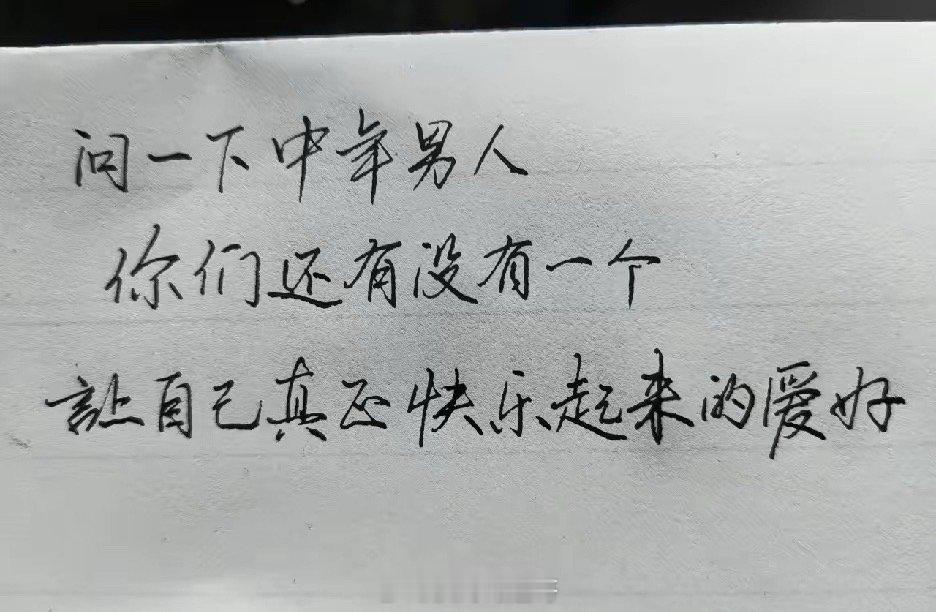 问一下中年男人
你们还有没有一个
让自己真正快乐起来的爱好